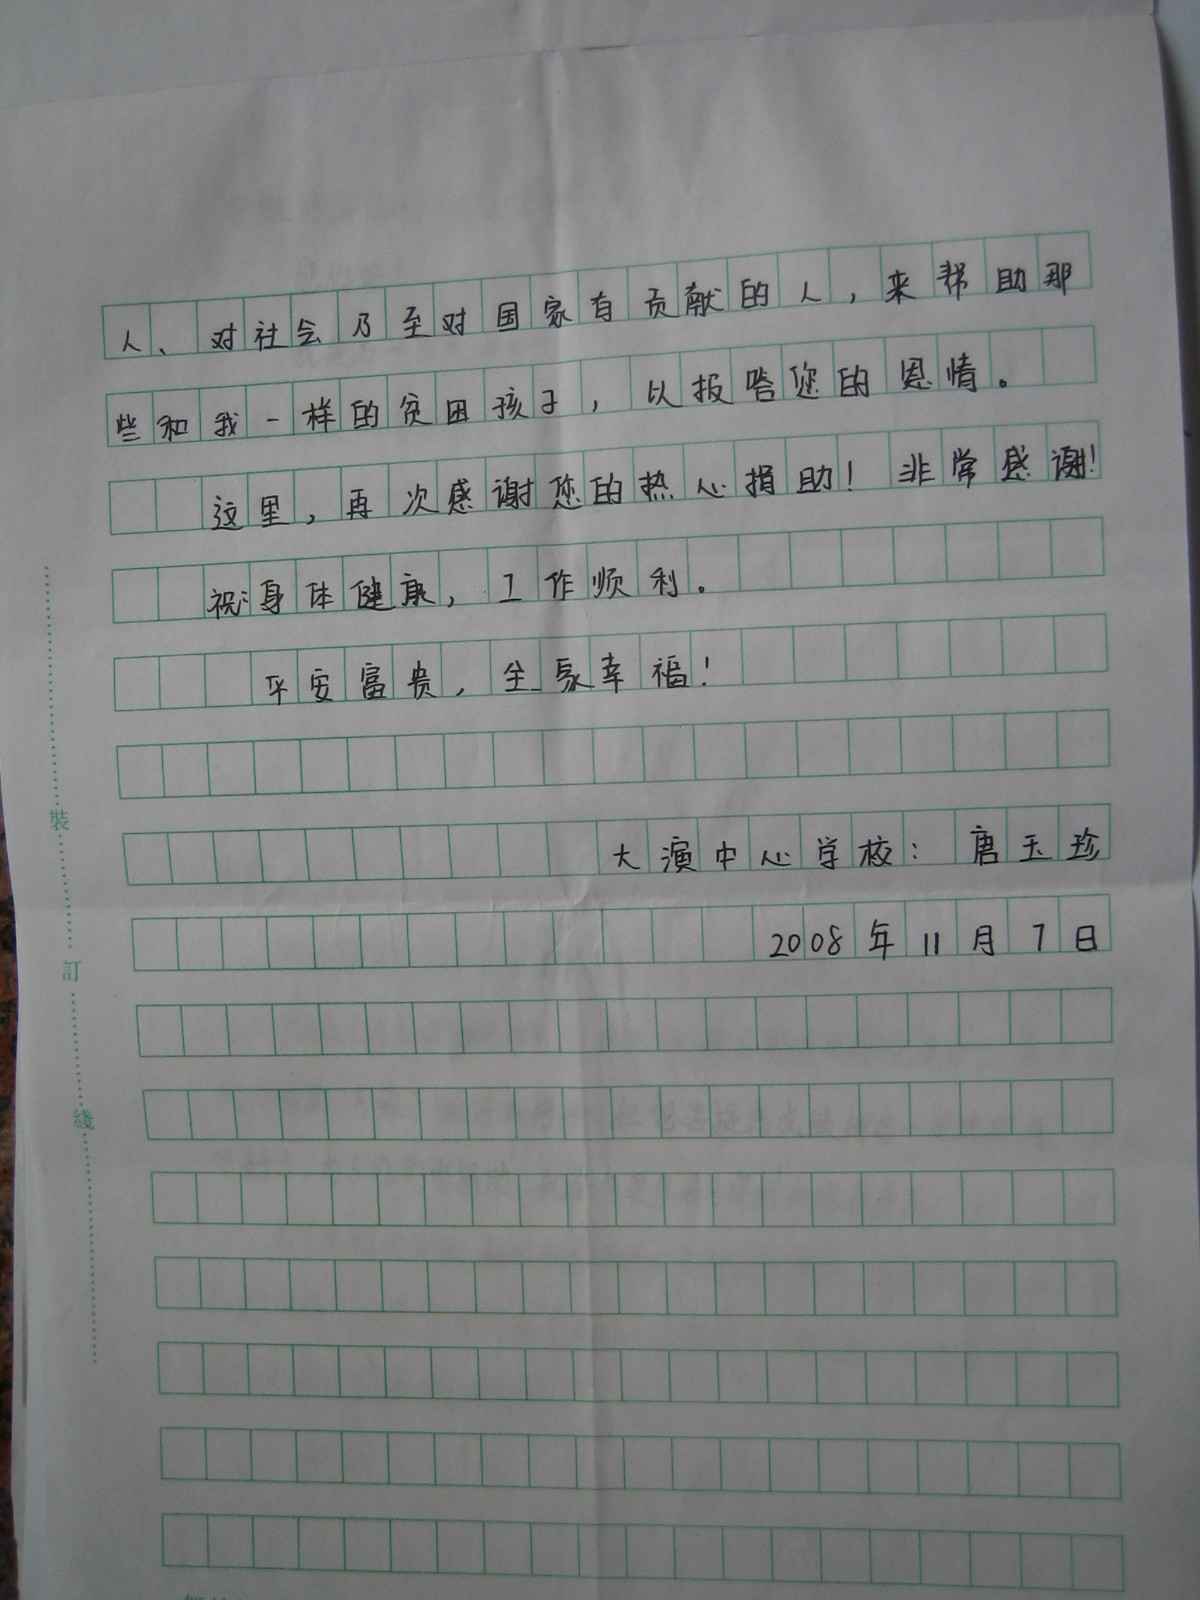 人、对社会乃至对国家有贡献的人，来帮助那
些和我一样的贫困孩子，以报答您的恩情。
这里，再次感谢您的热心捐助！非常感谢！
祝：身体健康，工作顺利。
平安富贵，全家幸福！
大演中心学校：唐玉珍
2008年11月7日
裝
訂
綫